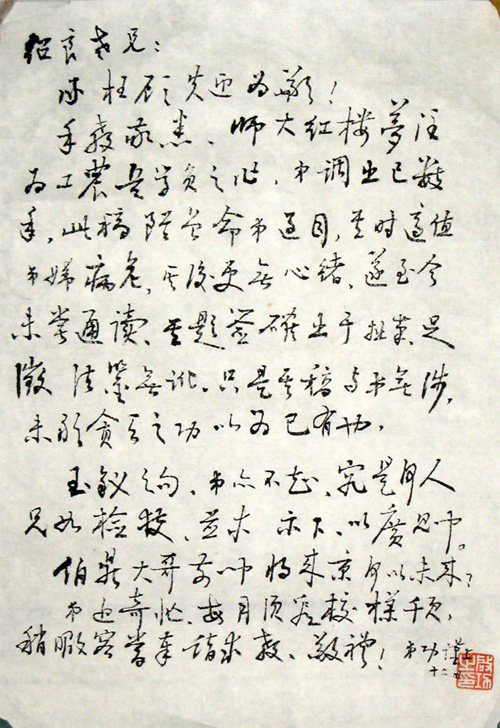 绍良老兄：
承枉顾失迎为歉！
手教敬悉。师大红楼梦注
为工农兵学员之作，弟调出已数
年，此稿陪曾命弟过目，其时适值
弟妇病危，其后更无心绪，遂至今
未尝通读。其题签确出于拙笔，足
征法鉴无讹。只是其稿与弟无涉，
未敢贪天之功以为己有也。
玉钗句，弟亦不知，究是何人
兄如检获，并求示下，以广见闻。
伯鼎大哥前闻将来京何以未来？
弟近奇忙，每月须看校样千页，
稍暇容当奉诣求教，敬礼！弟功谨上
十二、
启功之印